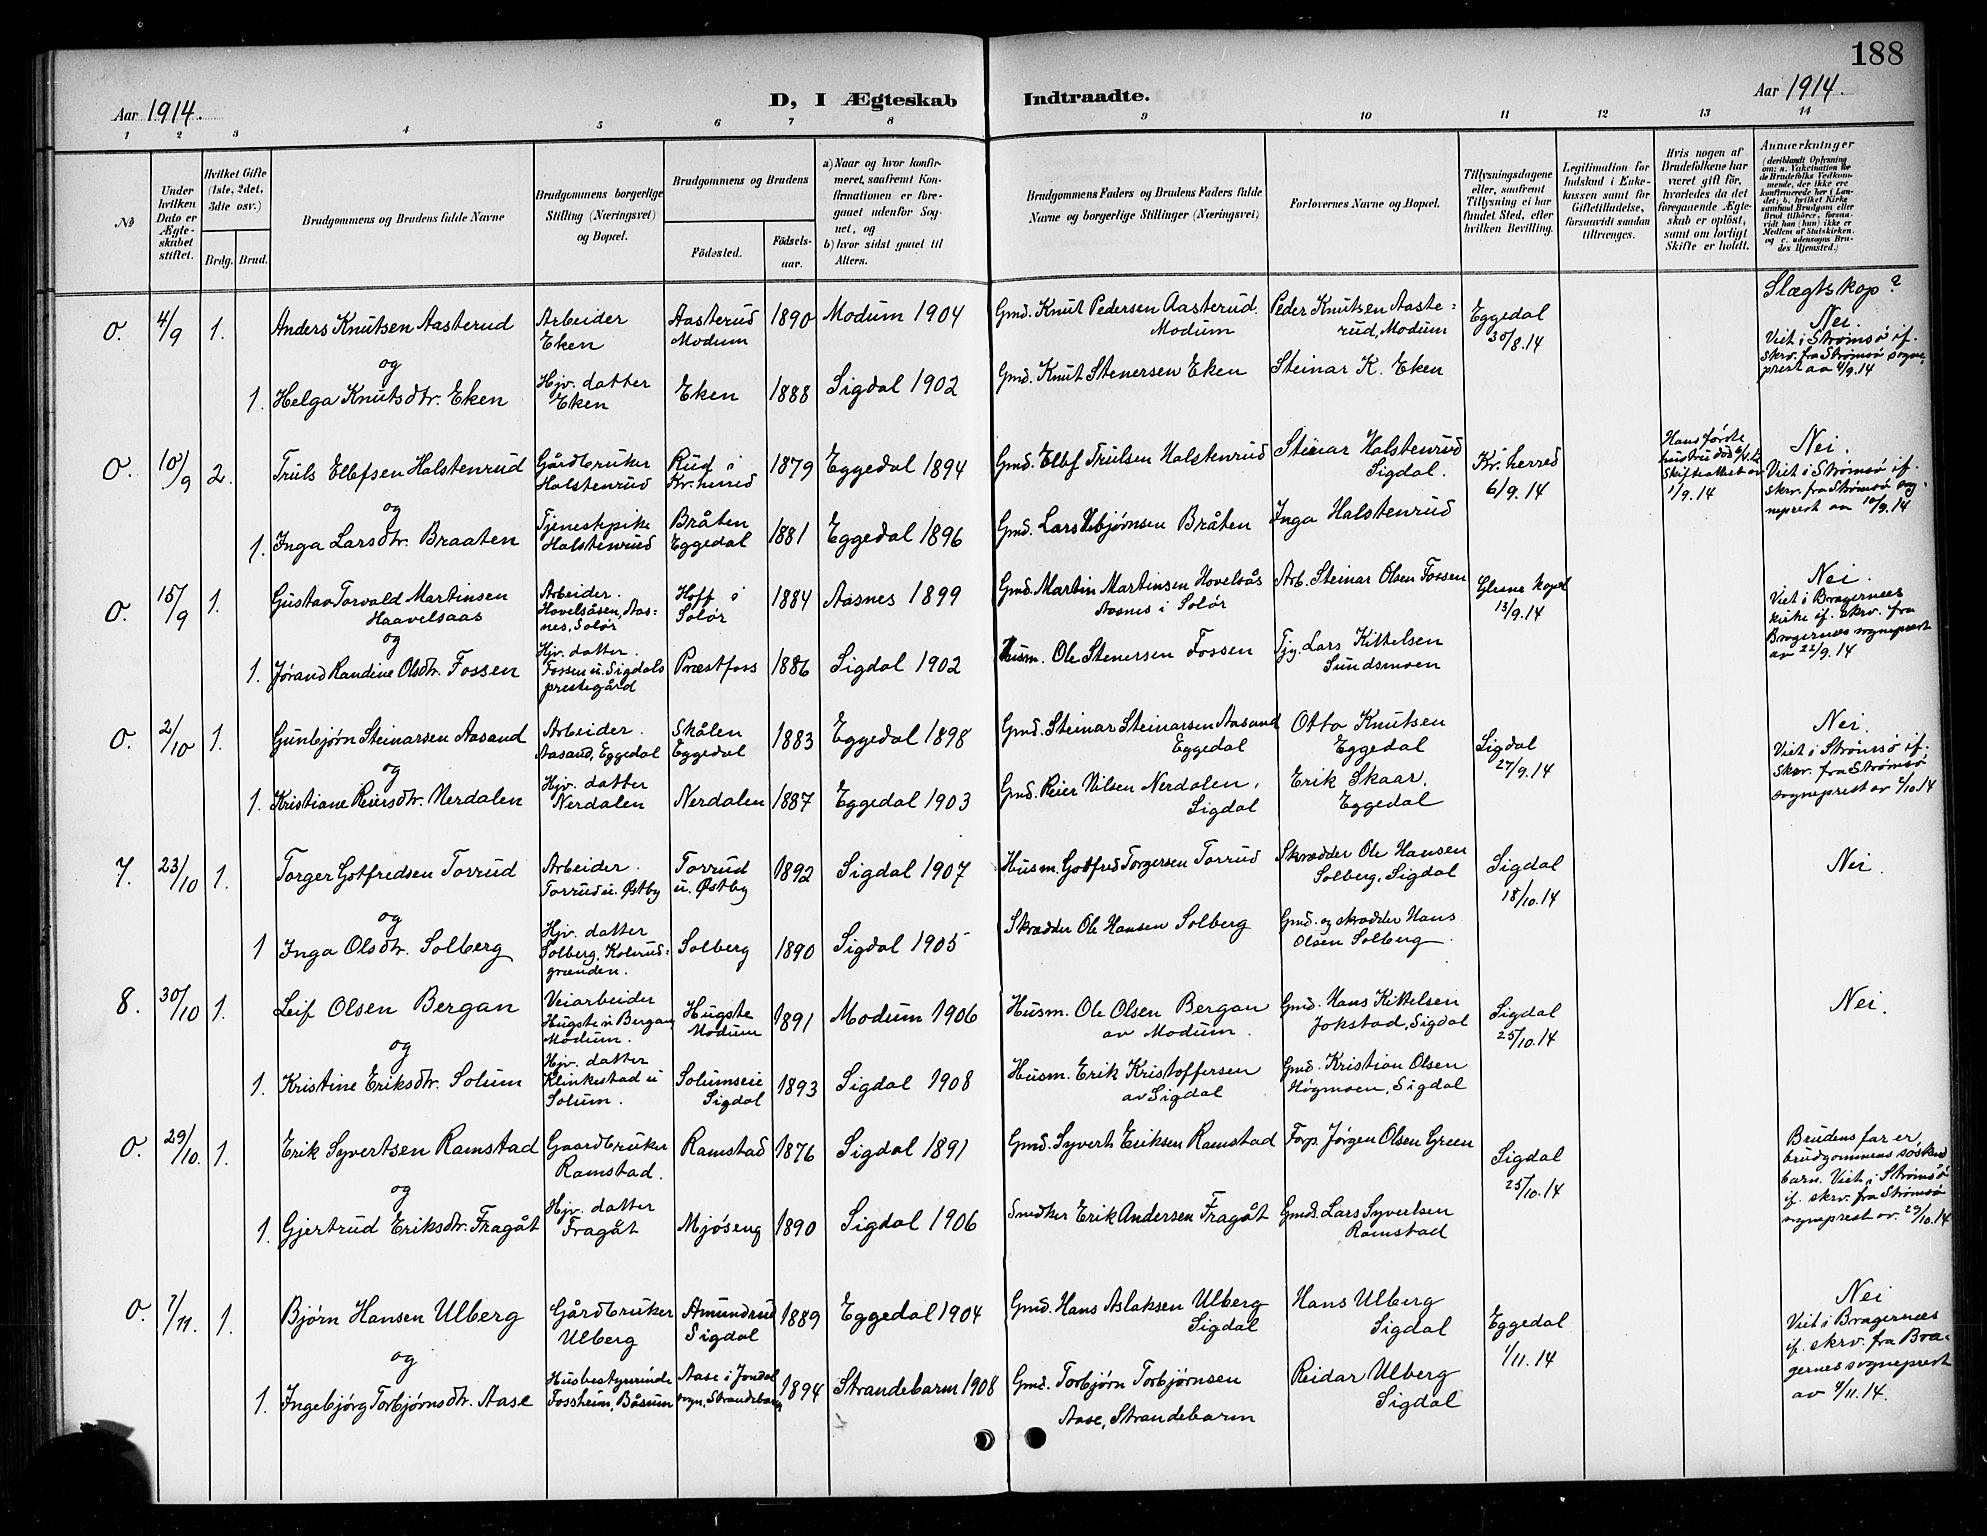 188
Aar 1914.
D, I Ægteskab
Indtraadte.
Aar 1914.
1 2 3 4 5 6 7 8 9 10 11 12 13 14
No
Under hvilken Dato er Ægteskabet stiftet.
Hvilket Gifte (1ste, 2det, 3die osv.)
Brdg. Brud.
Brudgommens og Brudens fulde Navne
Brudgommens borgerlige Stilling (Næringsvei) og Bopæl.
Brudgommens og Brudens
Födested.
Födsels-aar.
a) Naar og hvor konfirmeret, saafremt Konfirmationen er foregaaet udenfor Sognet, og
b) hvor sidst gaaet til Alters.
Brudgommens Faders og Brudens Faders fulde Navne og borgerlige Stillinger (Næringsvei)
Forlovernes Navne og Bopæl.
Tillysningsdagene eller, saafremt Tillysning ei har fundet Sted, efter hvilken Bevilling.
Legitimation for Indskud i Enkekassen samt for Giftetilladelse, forsaavidt saadan tiltrænges.
Hvis nogen af Brudefolkene har været gift för, hvorledes da det foregaaende Ægteskab er oplöst, samt om lovligt Skifte er holdt.
Anmærkninger
(deriblandt Oplysning om: a. Vakcination for de Brudefolks Vedkommende, der ikke ere konfirmerede her i Landet; b. hvilket Kirkesamfund Brudgom eller Brud tilhörer, forsaavidt han (hun) ikke er Medlem af Statskirken, og c. udensogns Brudes Hjemsted.)
Slægtskap?
0. 4/9 1. Anders Knutsen Aasterud Arbeider Eken Aasterud Modum 1890 Modum 1904 Gmd. Knut Pedersen Aasterud. Modum Peder Knutsen Aasterud, Modum Eggedal 30/8.14 Nei. Viet i Strømsø if. skrv. fra Strømsø sogneprest av 4/9.14
og
1. Helga Knutsdtr. Eken Hjv. datter Eken Eken 1888 Sigdal 1902 Gmd. Knut Stenersen Eken Steinar K. Eken
0. 10/9 2. Truls Ellefsen Halstenrud Gårdbruker Halstenrud Rud i Kr. herred 1879 Eggedal 1894 Gmd. Ellef Trulsen Halstenrud Steinar Halstenrud Sigdal. Kr. herred 6/9.14 Hans første hustru død Skifteattest av 1/9.14 Nei. Viet i Strømsø if. skrv. fra Strømsø sogneprest av 10/9.14
og
1. Inga Larsdtr. Braaten Tjenestepike Halstenrud Bråten Eggedal 1881 Eggedal 1896 Gmd. Lars Vebjørnsen Bråten Inga Halstenrud
0. 15/9 1. Gustav Torvald Martinsen Haavelsaas Arbeider. Hovelsåsen, Aasnes, Solør Hoff i Solør 1884 Aasnes 1899 Gmd. Martin Martinsen Hovelsås Aasnes i Solør Arb. Steinar Olsen Fossen Glesne kapel 13/9.14 Nei. Viet i Bragernees kirke if. skrv. fra Bragernees sogneprest av 22/9.14
og
1. Jørand Randine Olsdtr. Fossen Hjv. datter. Fossen u. Sigdals prestegård Præstfoss 1886 Sigdal 1902 Husm. Ole Stenersen Fossen Tjg. Lars Kittelsen Sundsmoen
0. 2/10 1. Gunbjørn Steinarsen Aasand Arbeider. Aasand, Eggedal Skålen Eggedal 1883 Eggedal 1898 Gmd. Steinar Steinarsen Aasand Eggedal Otto Knutsen Eggedal Sigdal 27/9.14 Nei. Viet i Strømsø if. skrv. fra Strømsø sogneprest av 2/10.14
og
1. Kristiane Reiersdtr. Nerdalen Hjv. datter Nerdalen Nerdalen 1887 Eggedal 1903 Gmd. Reier Nilsen Nerdalen, Sigdal Erik Skaar, Eggedal
7. 23/10 1. Torger Gotfredsen Torrud Arbeider. Torrud u. Østby Torrud u. Østby 1892 Sigdal 1907 Husm. Gotfred Torgersen Torrud Skrædder Ole Hansen Solberg, Sigdal Sigdal 18/10.14 Nei.
og
1 Inga Olsdtr. Solberg Hjv. datter Solberg, Kolsrudgrænden. Solberg 1890 Sigdal 1905 Skrædder Ole Hansen Solberg Gmd. og skrædder Hans Olsen Solberg.
8. 30/10 1. Leif Olsen Bergan Veiarbeider Hugste u Bergan Modum. Hugste Modum 1891 Modum 1906 Husm. Ole Olsen Bergan av Modum. Gmd. Hans Kittelsen Jokstad, Sigdal Sigdal 25/10.14 Nei.
og
1. Kristine Eriksdtr. Solum Hjv. datter Klinkestad u Solum. Solumseie Sigdal 1893 Sigdal 1908 Husm. Erik Kristoffersen av Sigdal Gmd. Kristian Olsen Høgmoen, Sigdal
0. 29/10. 1. Erik Syvertsen Ramstad Gaardbruker Ramstad. Ramstad 1876 Sigdal 1891 Gmd. Syvert Eriksen Ramstad Forp. Jørgen Olsen Green Sigdal 25/10.14 Brudens far er brudgommens søskendbarn. Viet i Strømsø if. skrv. fra Strømsø sogneprest av 29/10.14
og
1. Gjertrud Eriksdtr. Fragåt Hjv. datter Fragåt Mjøseng 1890 Sigdal 1906 Snedker Erik Andersen Fragåt Gmd. Lars Syvertsen Ramstad
0. 7/11. 1. Bjørn Hansen Ulberg Gårdbruker Ulberg Amundrud Sigdal 1889 Eggedal 1904 Gmd. Hans Aslaksen Ulberg Sigdal Hans Ulberg Sigdal Eggedal 1/11.14 Nei Viet i Bragernees if. skrv. fra Bragernes sogneprest av 7/11.14.
og
1. Ingebjørg Torbjørnsdtr. Aase Husbestyrerinde Fossheim, Båsum Aase i Jondal sogn, Strandebarm 1894 Strandebarm 1908 Gmd. Torbjørn Torbjørnsen Aase, Strandebarm Reidar Ulberg Sigdal